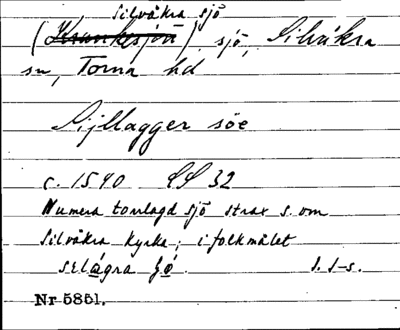 Silvåkra sjö
(Krankesjön), sjö, Silvåkra
sn, Torna hd
Sijllagger söe
c. 1590 LL 32
Numera torrlagd sjö strax s. om
Silvåkra kyrka; i folkmålet
selågra
Nr 5851.